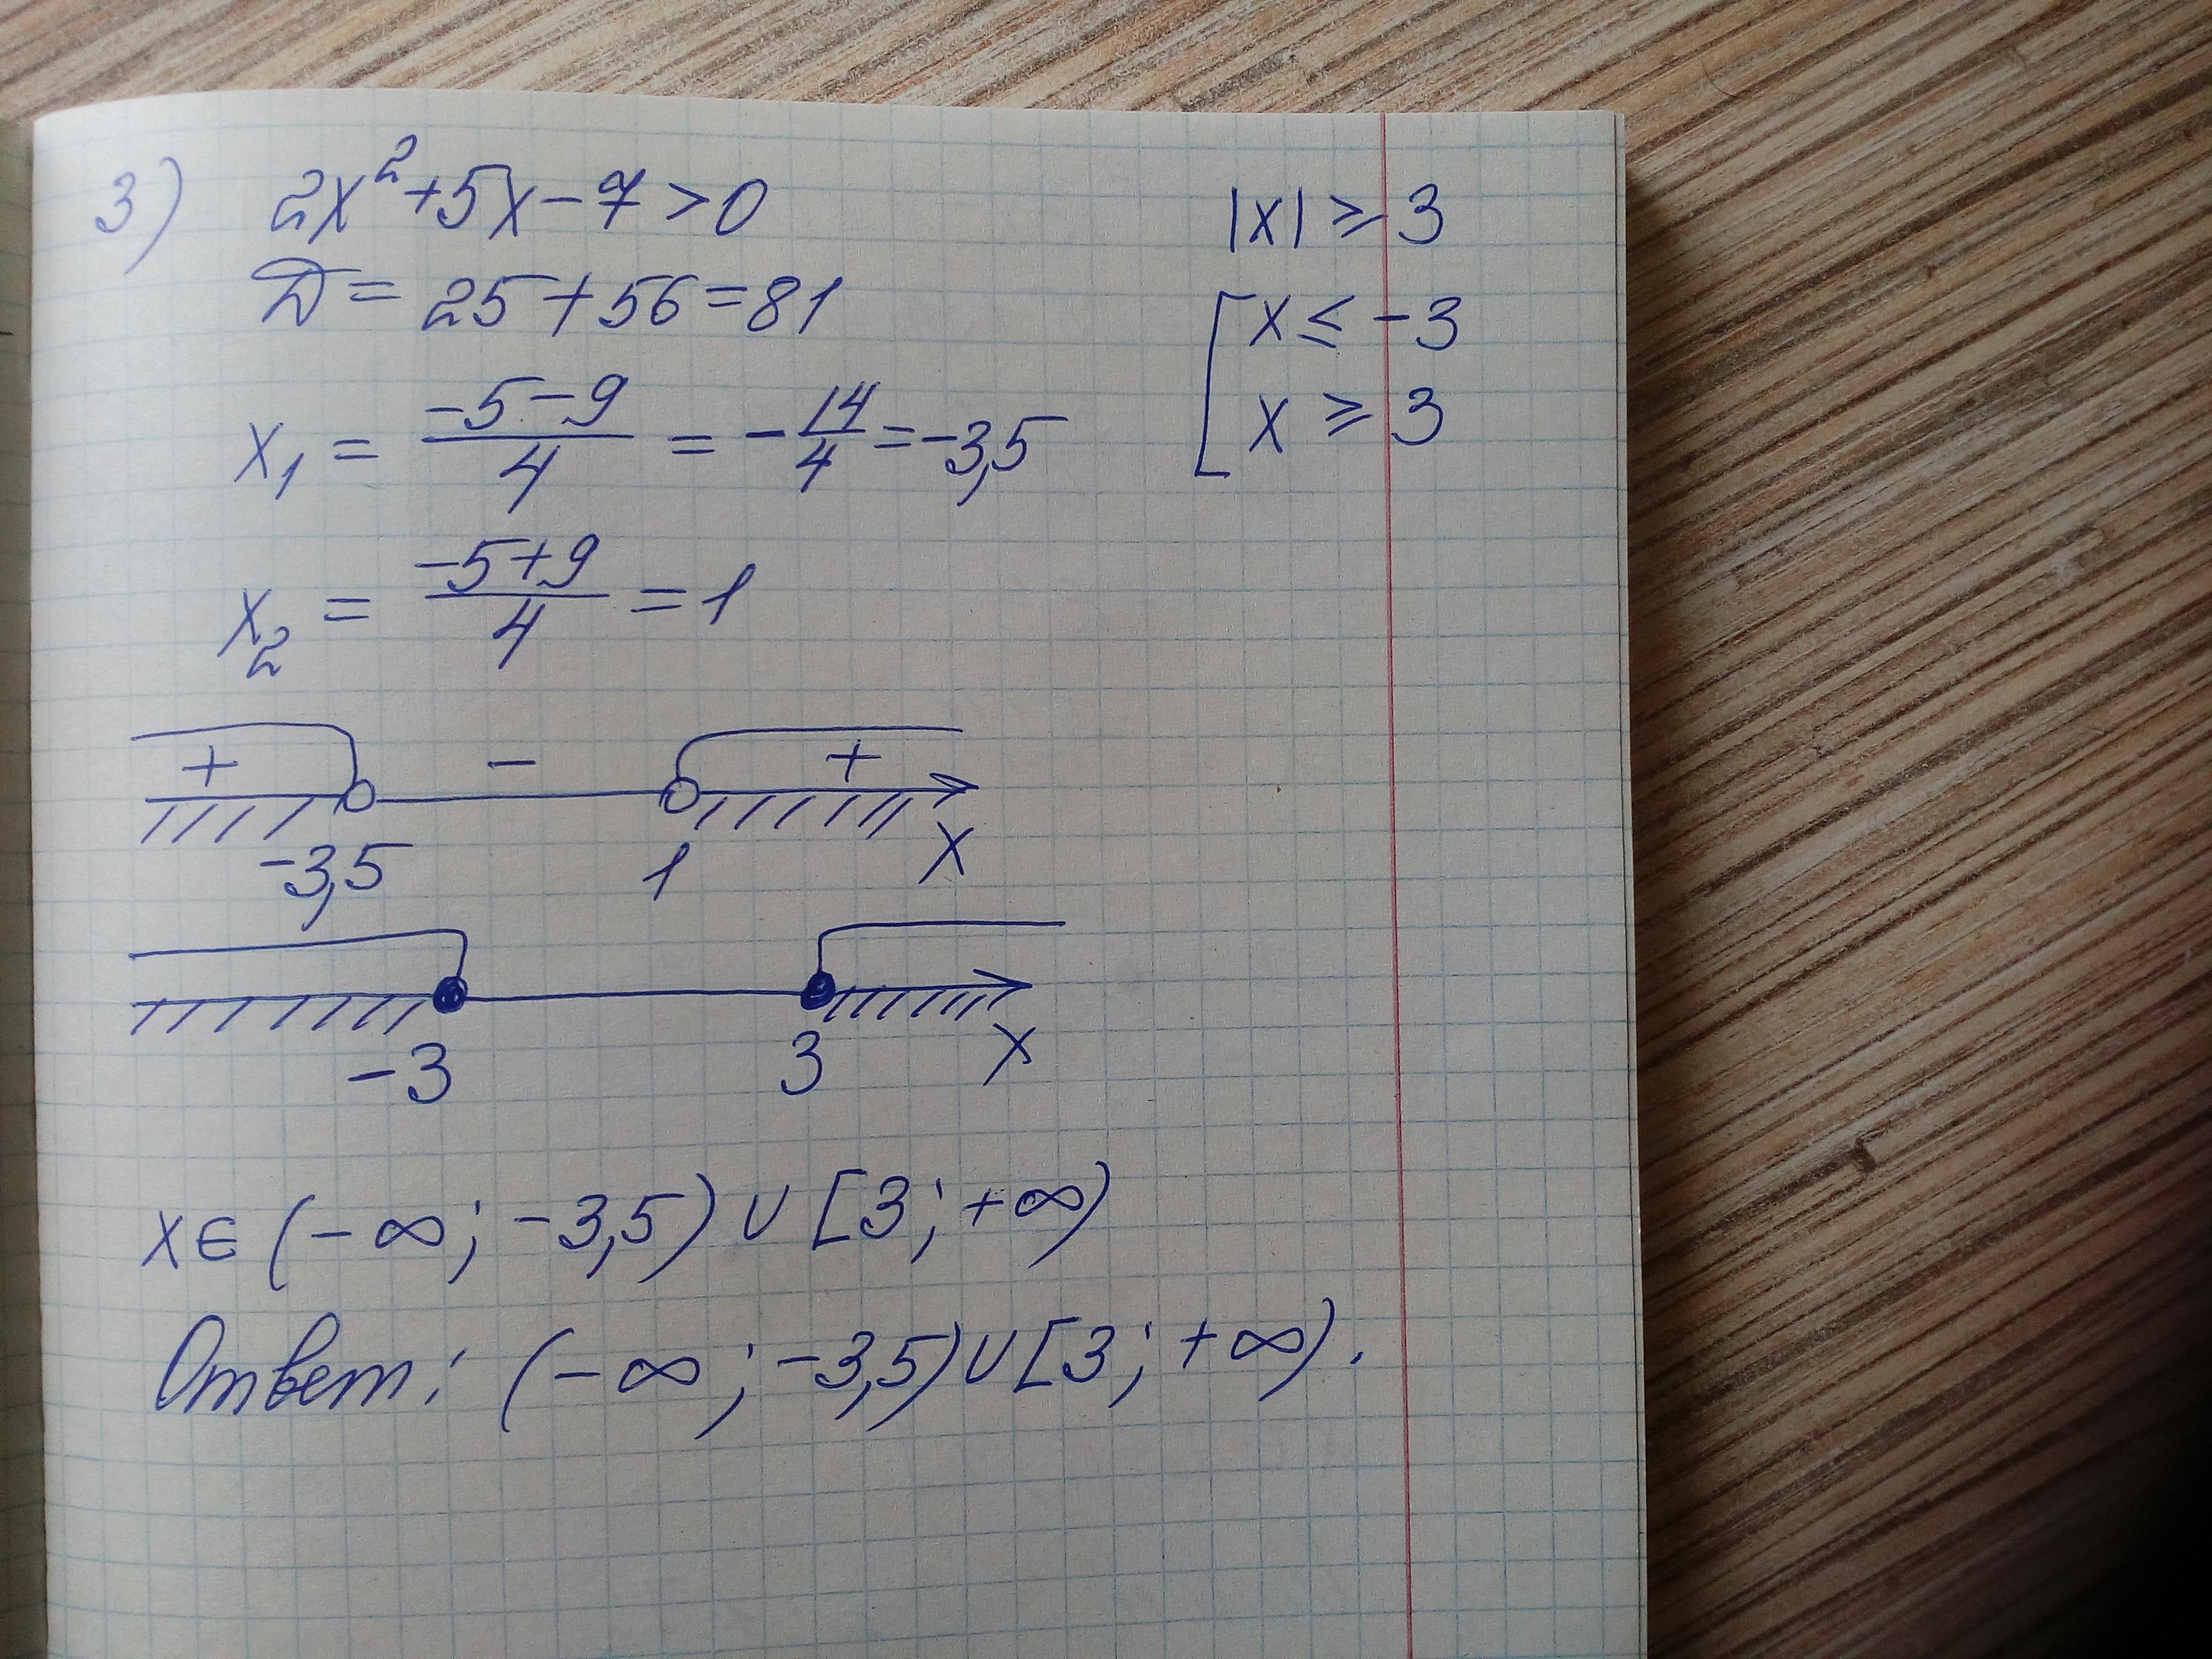 3) 2x²+5x-7>0
Д= 25+56=81
x₁ = (-5-9)/4 = -14/4 = -3,5
x₂ = (-5+9)/4 = 1
|x| ≥ 3
[x ≤ -3
x ≥ 3
+ - +
-3,5 1 x
-3 3 x
x∈(-∞; -3,5)∪[3; +∞)
Ответ: (-∞; -3,5)∪[3; +∞).